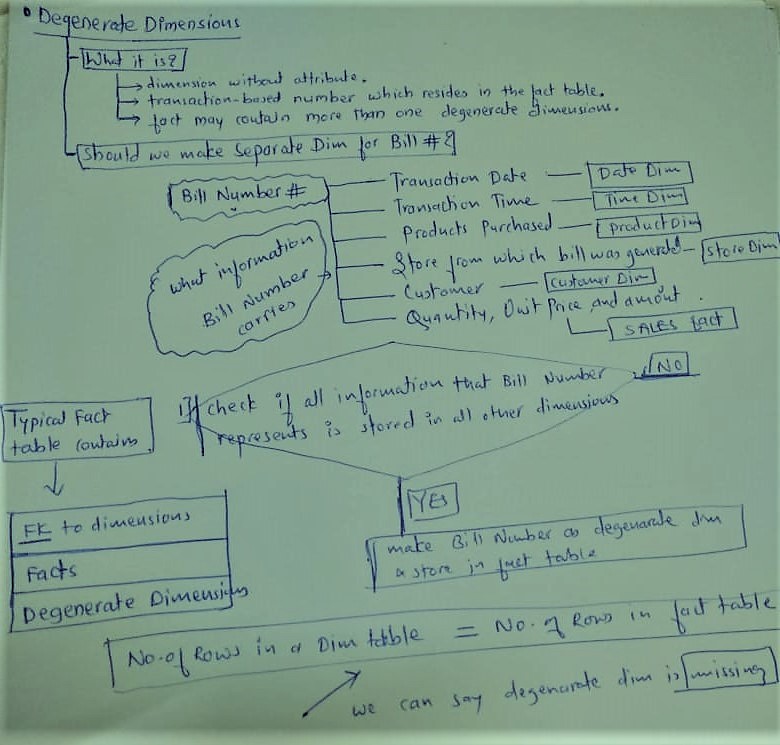 Degenerate Dimensions
What it is?
→ dimension without attribute.
→ transaction-based number which resides in the fact table.
→ fact may contain more than one degenerate dimensions.
Should we make Separate Dim for Bill #?
Bill Number #
Transaction Date — Date Dim
Transaction Time — Time Dim
Products Purchased — Product Dim
Store from which bill was generated — Store Dim
Customer — Customer Dim
Quantity, Unit Price and amout.
SALES fact
what information
Bill Number
carries
If check if all information that Bill Number
represents is stored in all other dimensious
NO
YES
make Bill Number as degenarate dim
& store in fact table
Typical Fact
table contains
FK to dimensions
Facts
Degenerate Dimensions
No. of Rows in a Dim table = No. of Rows in fact table
we can say degenarate dim is missing